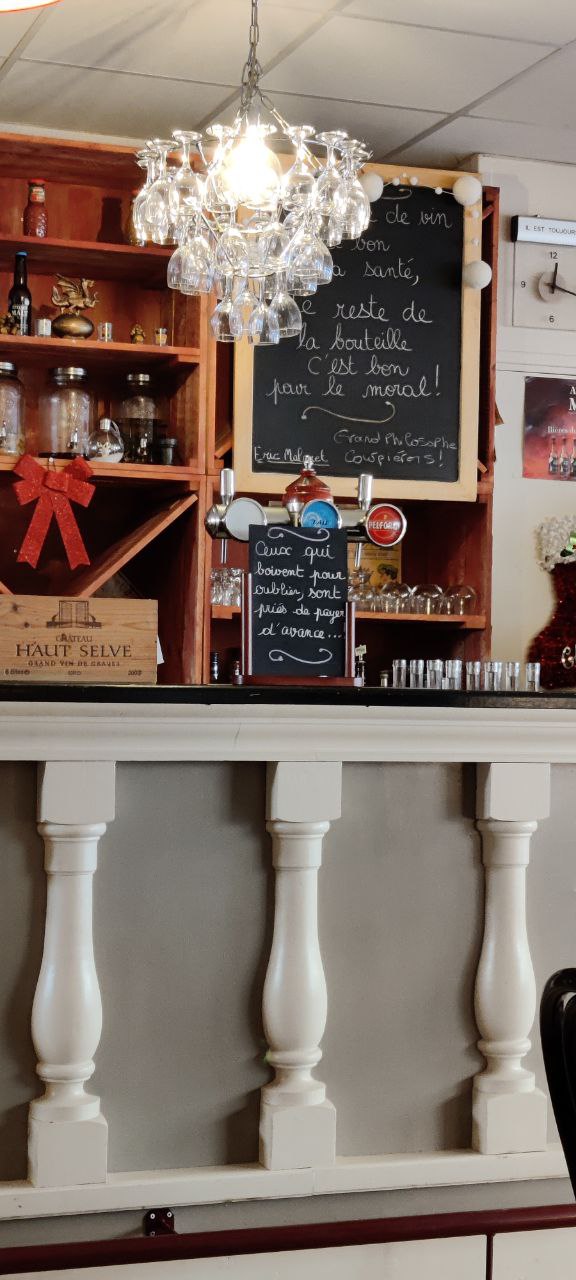 de vin
bon
santé,
reste de
la bouteille
C'est bon
pour le moral!
Grand Philosophe
IL EST TOUJOURS
12
9
6
Bières
PELFORTH
Ceux qui
boivent pour
oublier, sont
priés de payer
d'avance...
CHÂTEAU
HAUT SELVE
GRAND VIN DE GRAVES